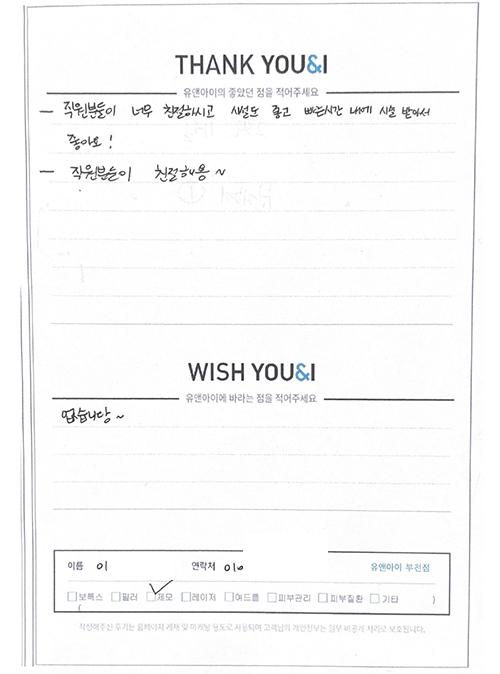 THANK YOU&I
유앤아이의 좋았던 점을 적어주세요
- 직원분들이 너무 친절하시고 시설도 좋고 빠른시간 내에 시술 받아서
좋아요!
- 직원분들이 친절해용~
WISH YOU&I
유앤아이에 바라는 점을 적어주세요
없습니당~
이름 이 연락처 010 유앤아이 부전점
□보톡스 □필러 ☑제모 □레이저 □여드름 □피부관리 □피부질환 □기타
( )
작성해주신 후기는 홈페이지 게재 및 마케팅 용도로 사용되며 고객님의 개인정보는 일부 비공개 처리로 보호됩니다.